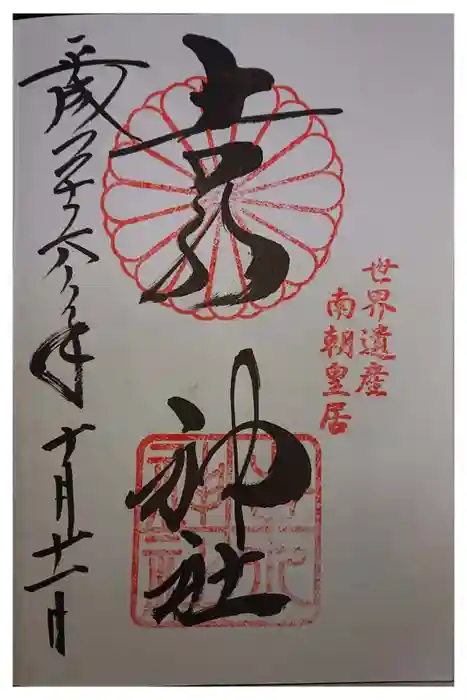 世界遺産
南朝皇居
吉水神社
平成二十六年十月廿一日